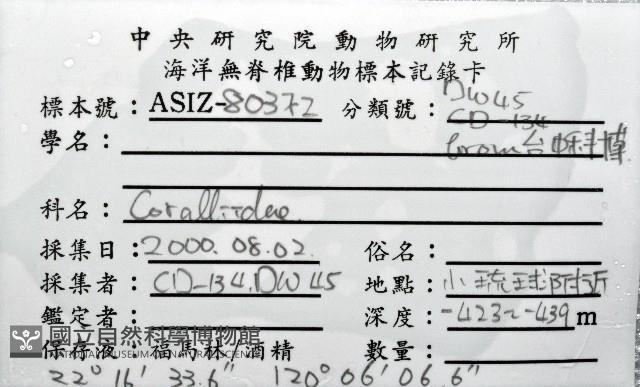 中央研究院動物研究所
海洋無脊椎動物標本記錄卡
標本號：ASIZ-80372 分類號：DW45
CD-134
學名： from台中科博
科名：Coralliidae
採集日：2000.08.02. 俗名：
採集者：CD-134.DW45 地點：小琉球附近
鑑定者： 深度：-423~-439 m
國立自然科學博物館
NATIONAL MUSEUM OF NATURAL SCIENCE
保存液：福馬林 酒精 數量：
22° 16' 33.6" 120° 06' 06.6"